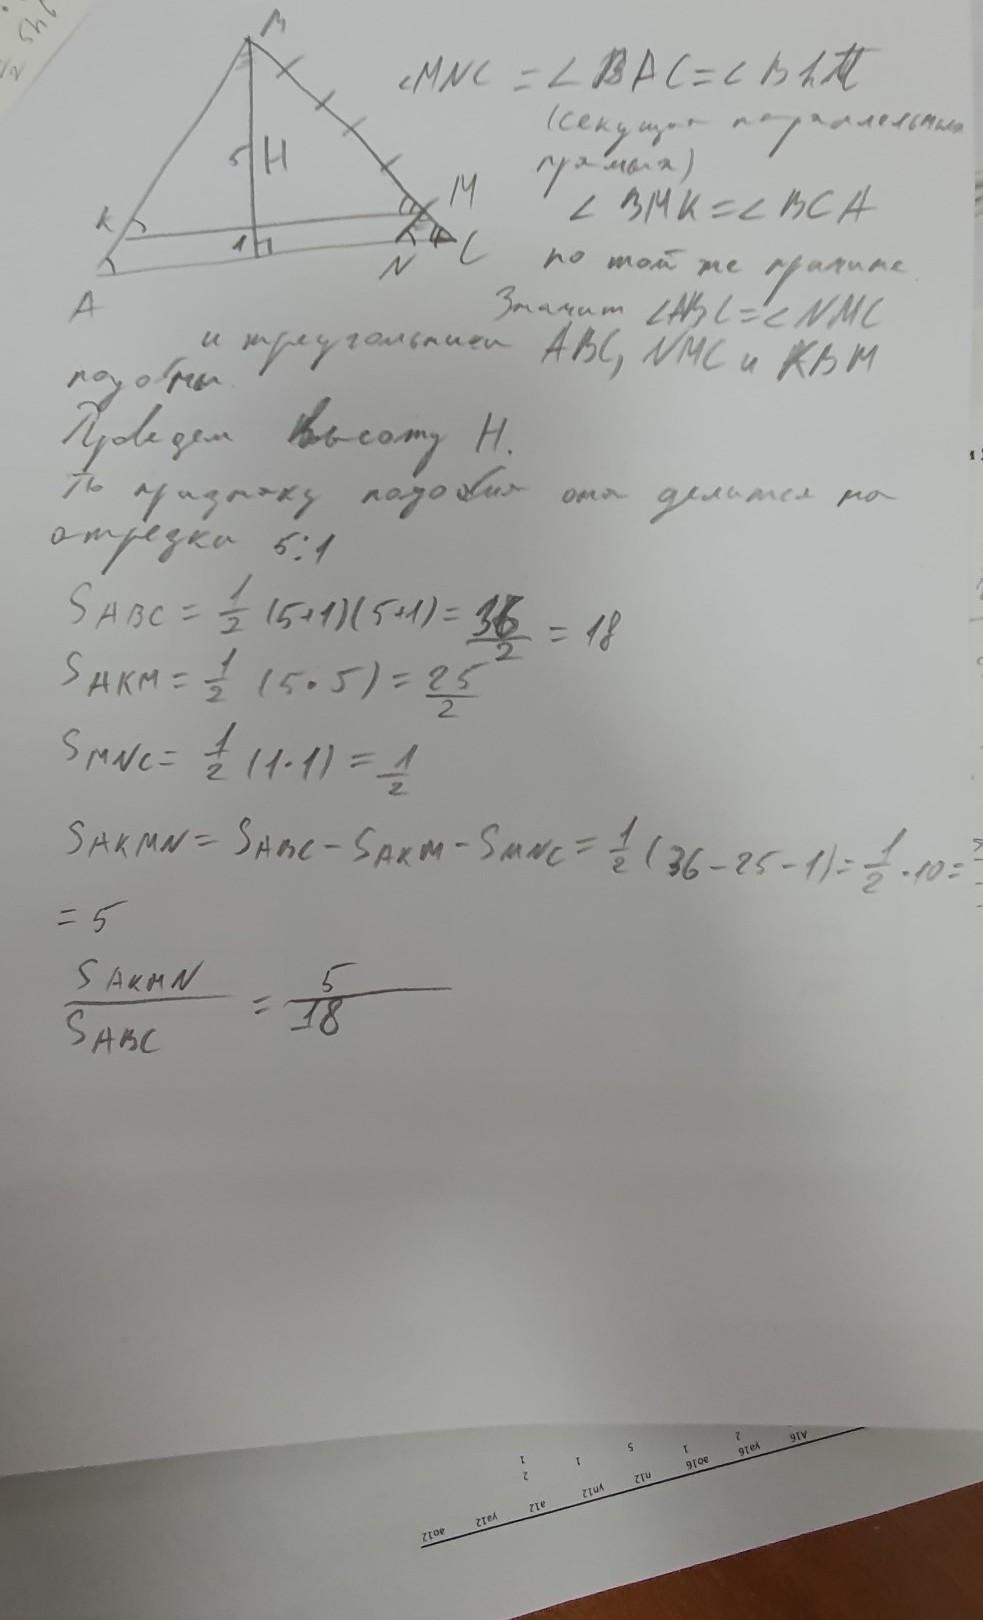 В
К
5
Н
М
1
А
N
С
∠MNC = ∠BAC = ∠BKM
(секущая параллельных
прямых)
∠BMK = ∠BCA
по той же причине
Значит ∠ABC = ∠NMC
и треугольники ABC, NMC и KBM
подобны.
Проведем высоту H.
По признаку подобия она делится на
отрезки 5:1
S ABC = 1/2 (5+1)(5+1) = 36/2 = 18
S AKM = 1/2 (5·5) = 25/2
S MNC = 1/2 (1·1) = 1/2
S AKMN = S ABC - S AKM - S MNC = 1/2 (36-25-1) = 1/2 · 10 =
= 5
S AKMN / S ABC = 5/18
A16 ya16 ao16 n12 yn12 a12 ya12 ao12
2 1 5 1 2 1